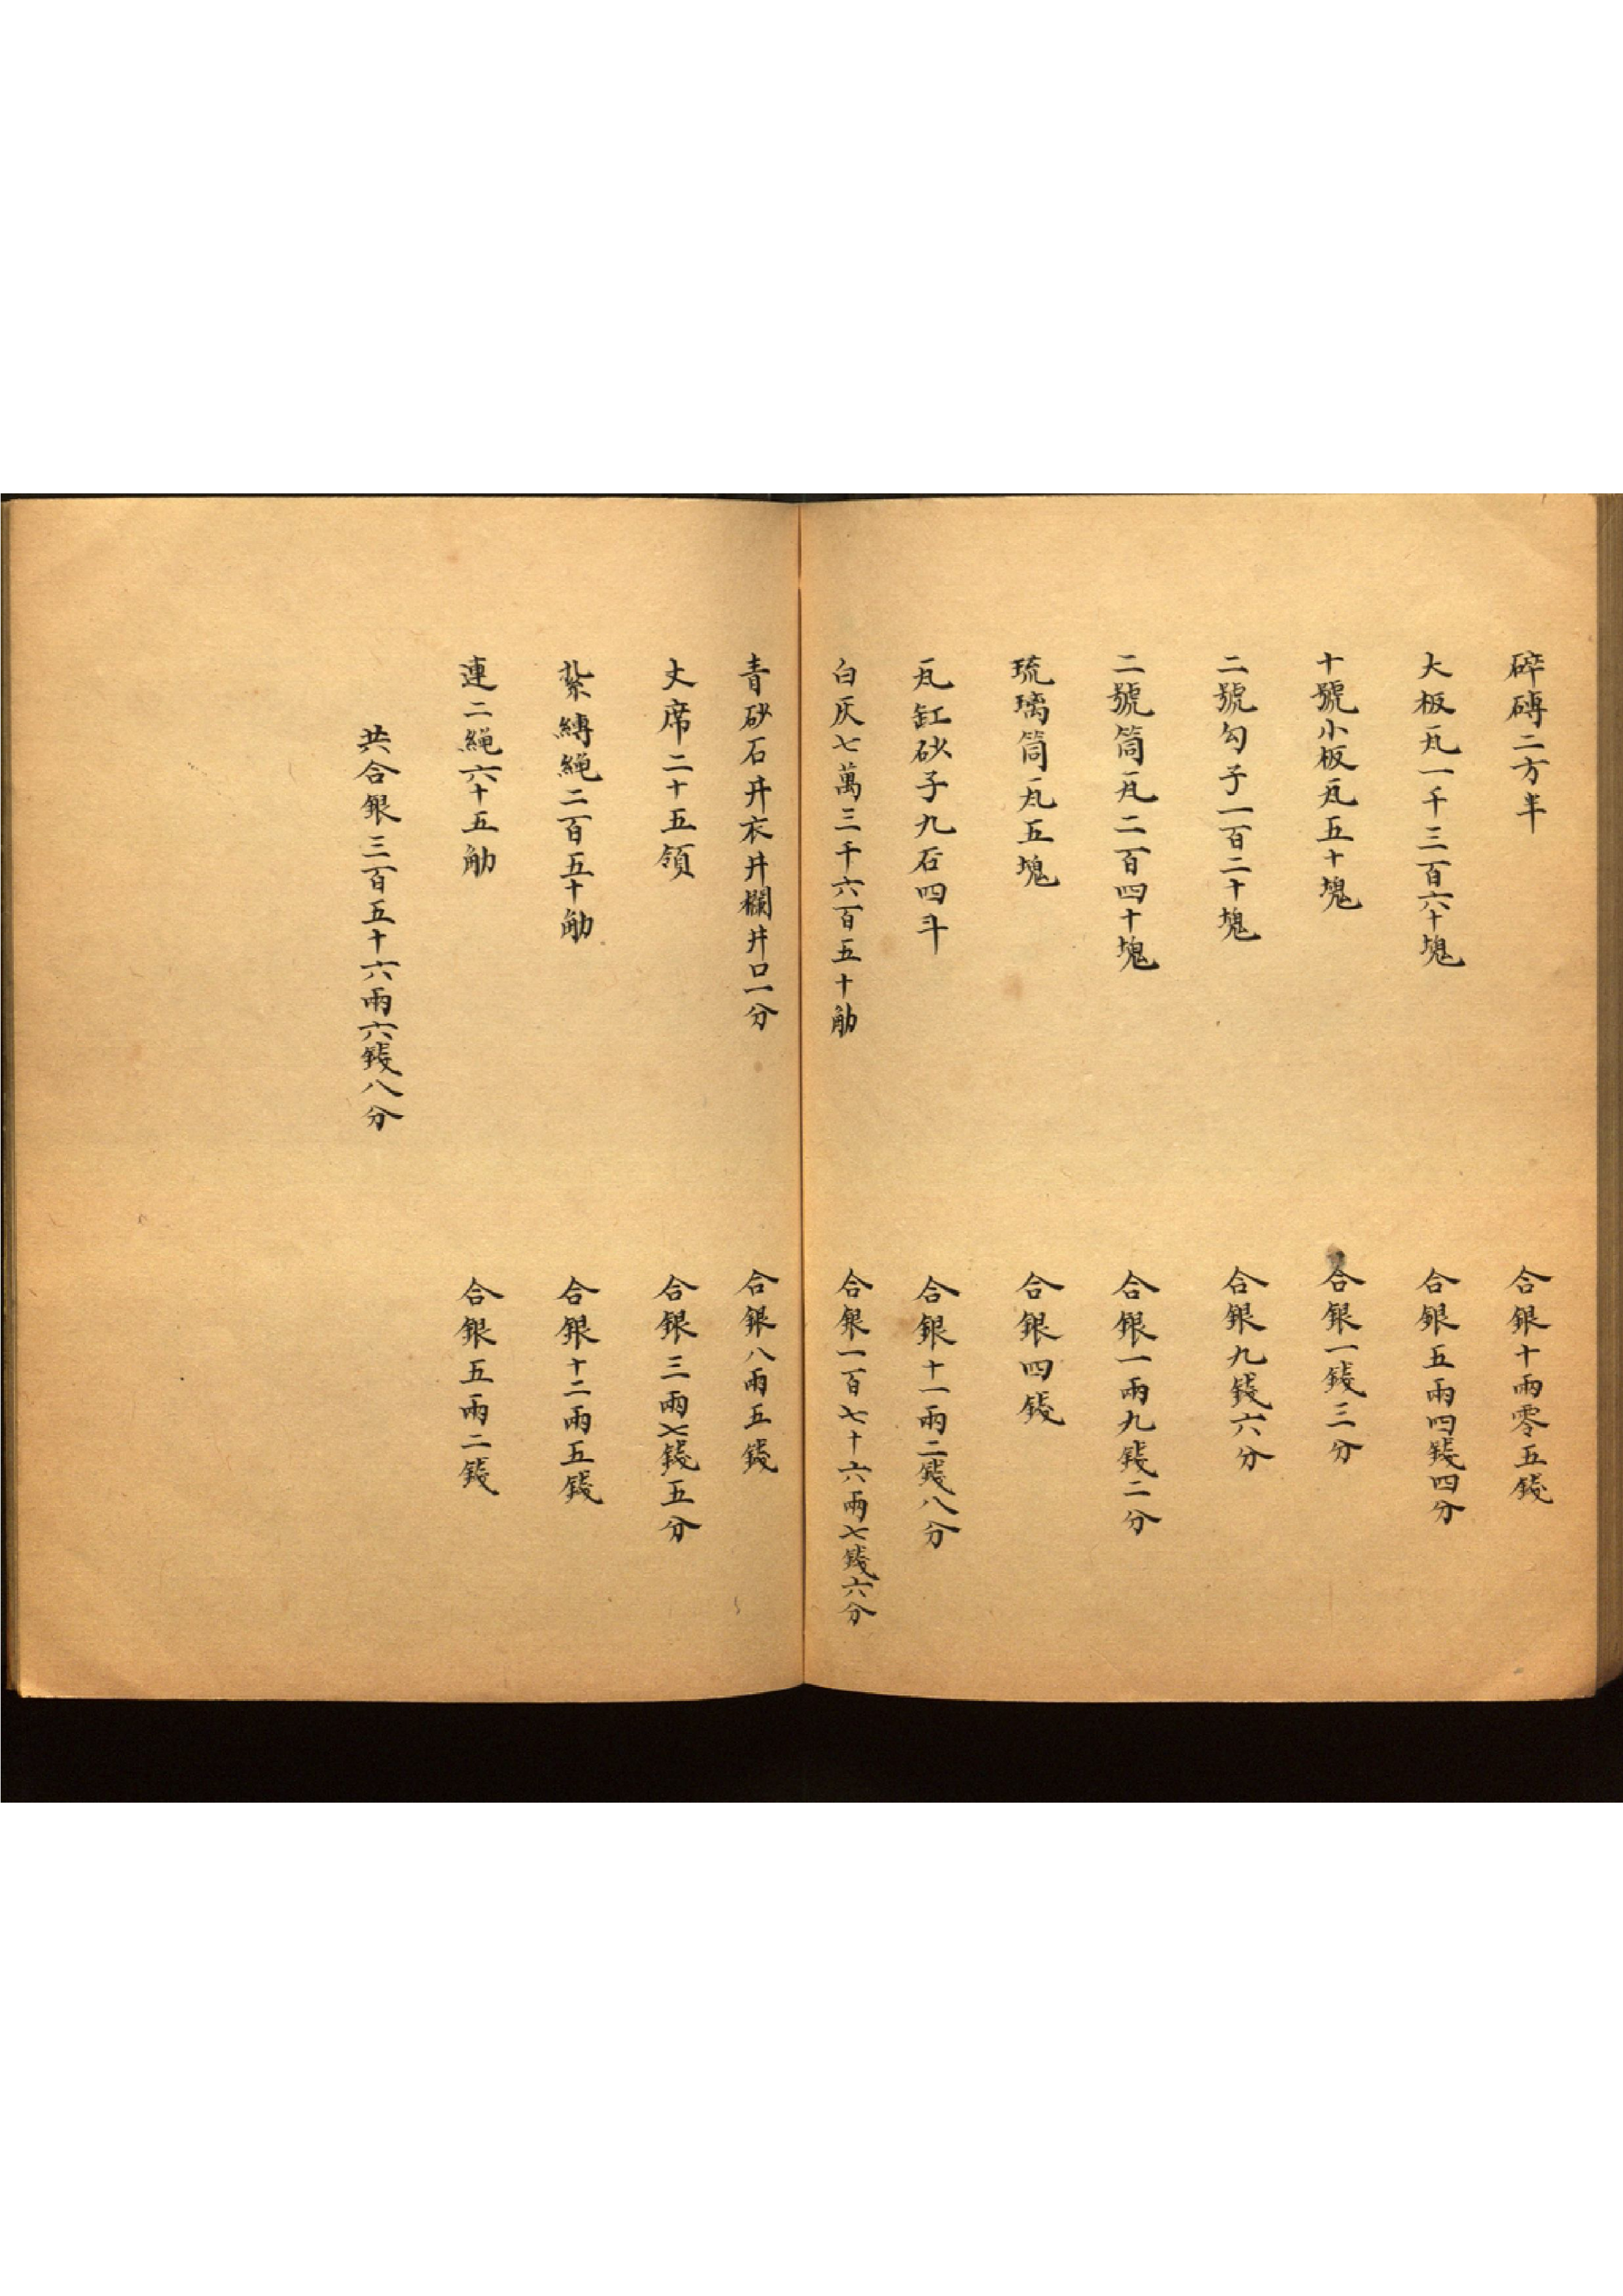 碎磚二方半　合銀十兩零五錢
大板瓦一千三百六十塊　合銀五兩四錢四分
十號小板瓦五十塊　合銀一錢三分
二號勾子一百二十塊　合銀九錢六分
二號筒瓦二百四十塊　合銀一兩九錢二分
琉璃筒瓦五塊　合銀四錢
瓦缸砂子九石四斗　合銀十一兩二錢八分
白灰七萬三千六百五十觔　合銀一百七十六兩七錢六分
青砂石井衣井欄井口一分　合銀八兩五錢
丈席二十五領　合銀三兩七錢五分
紮縛繩二百五十觔　合銀十二兩五錢
連二繩六十五觔　合銀五兩二錢
共合銀三百五十六兩六錢八分